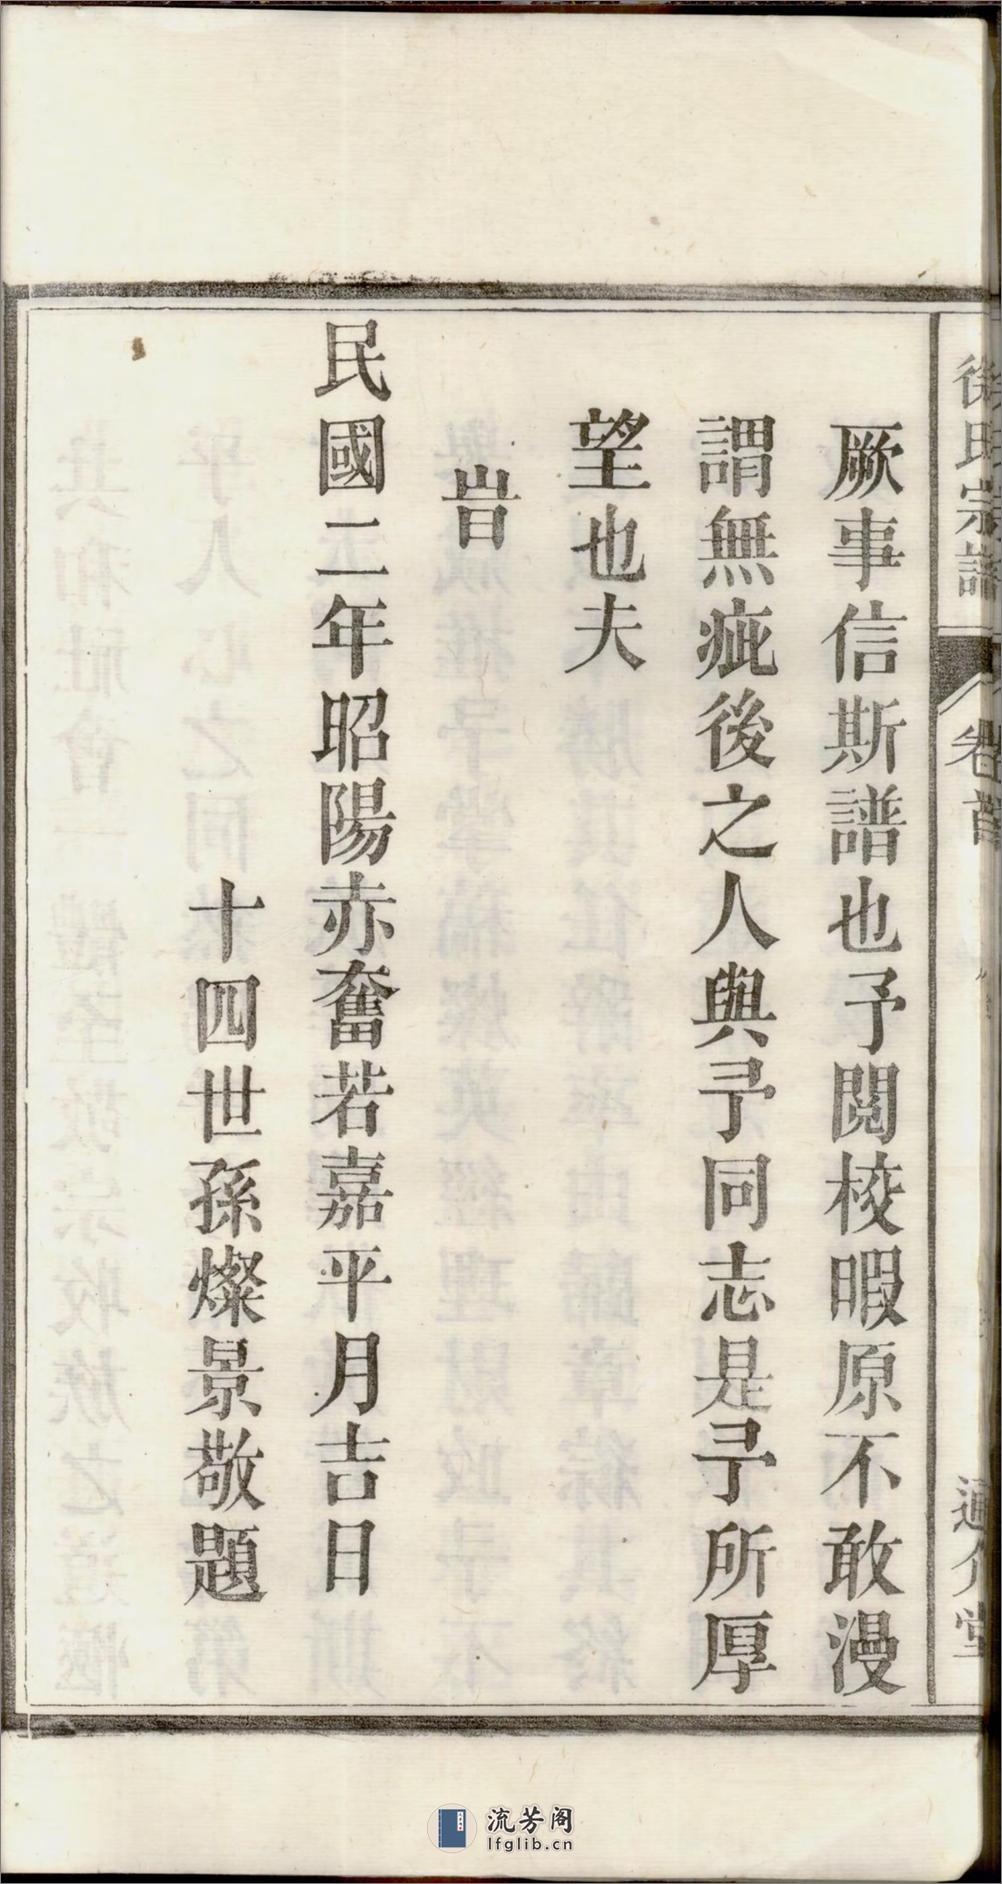 徐氏宗譜
卷首
通介堂
厥事信斯譜也予閱校暇原不敢漫
謂無疵後之人與予同志是予所厚
望也夫
旹
民國二年昭陽赤奮若嘉平月吉日
十四世孫燦景敬題
流芳阁
lfglib.cn